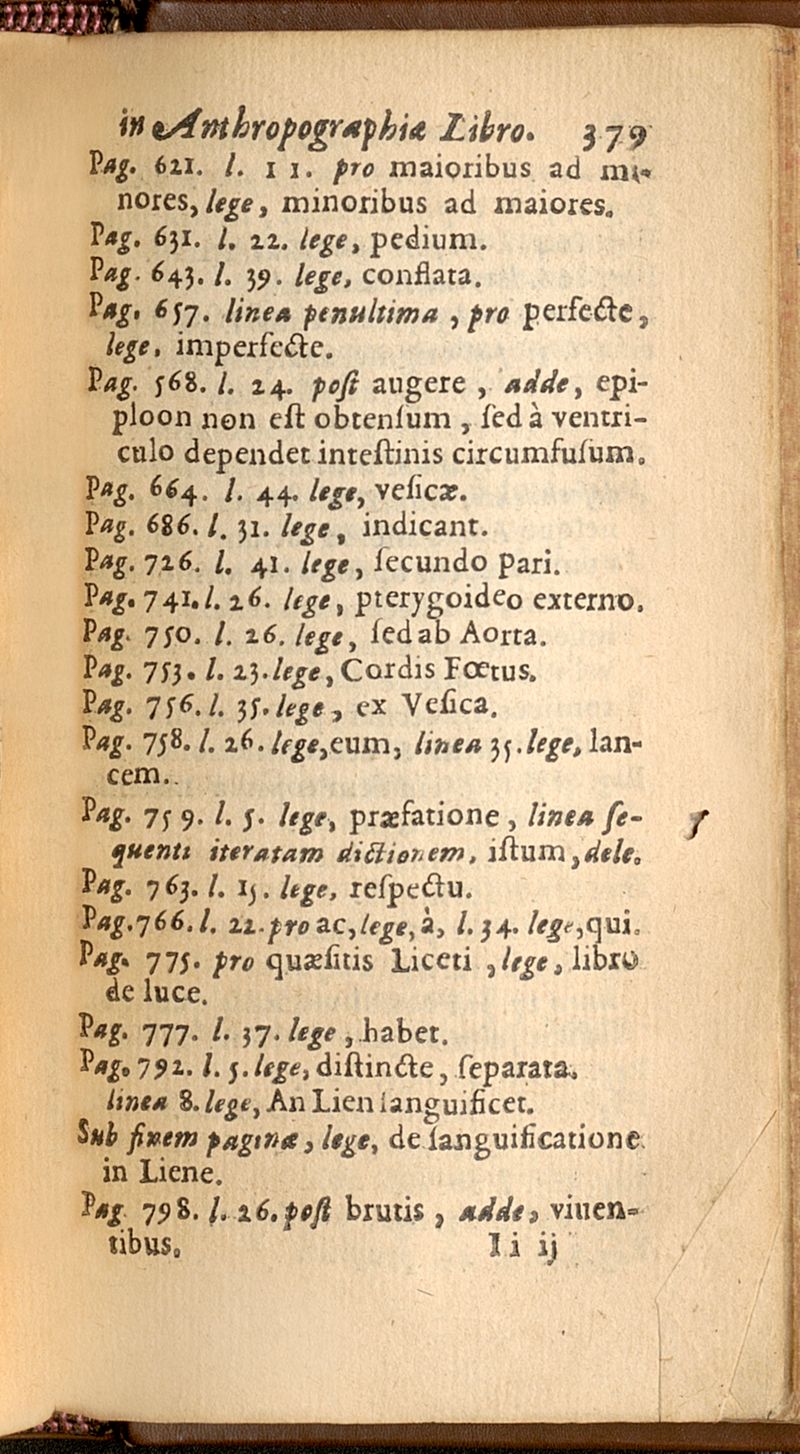 in Anthropographiæ Libro. 379
Pag. 621. l. 11. pro maioribus ad mi-
nores, lege, minoribus ad maiores.
Pag. 631. l. 22. lege, pedium.
Pag. 643. l. 39. lege, conflata.
Pag. 657. linea penultima, pro perfecte,
lege, imperfecte.
Pag. 568. l. 24. poſt augere, adde, epi-
ploon non eſt obtenſum, ſed à ventri-
culo dependet inteſtinis circumfuſum.
Pag. 664. l. 44. lege, veſicæ.
Pag. 686. l. 31. lege, indicant.
Pag. 726. l. 41. lege, ſecundo pari.
Pag. 741. l. 26. lege, pterygoideo externo.
Pag. 750. l. 26. lege, ſed ab Aorta.
Pag. 753. l. 23. lege, Cordis Fœtus.
Pag. 756. l. 35. lege, ex Veſica.
Pag. 758. l. 26. lege, eum, linea 35. lege, lan-
cem.
Pag. 759. l. 5. lege, præfatione, linea ſe-
quenti iteratam dictionem, iſtum, dele.
Pag. 763. l. 15. lege, reſpectu.
Pag. 766. l. 22. pro ac, lege, à, l. 34. lege, qui.
Pag. 775. pro quæſitis Liceti, lege, libro
de luce.
Pag. 777. l. 37. lege, habet.
Pag. 792. l. 5. lege, diſtincte, ſeparata.
linea 8. lege, An Lien ſanguificet.
Sub finem paginæ, lege, de ſanguificatione
in Liene.
Pag 798. l. 26. poſt brutis, adde, viuen-
tibus. Ii ij